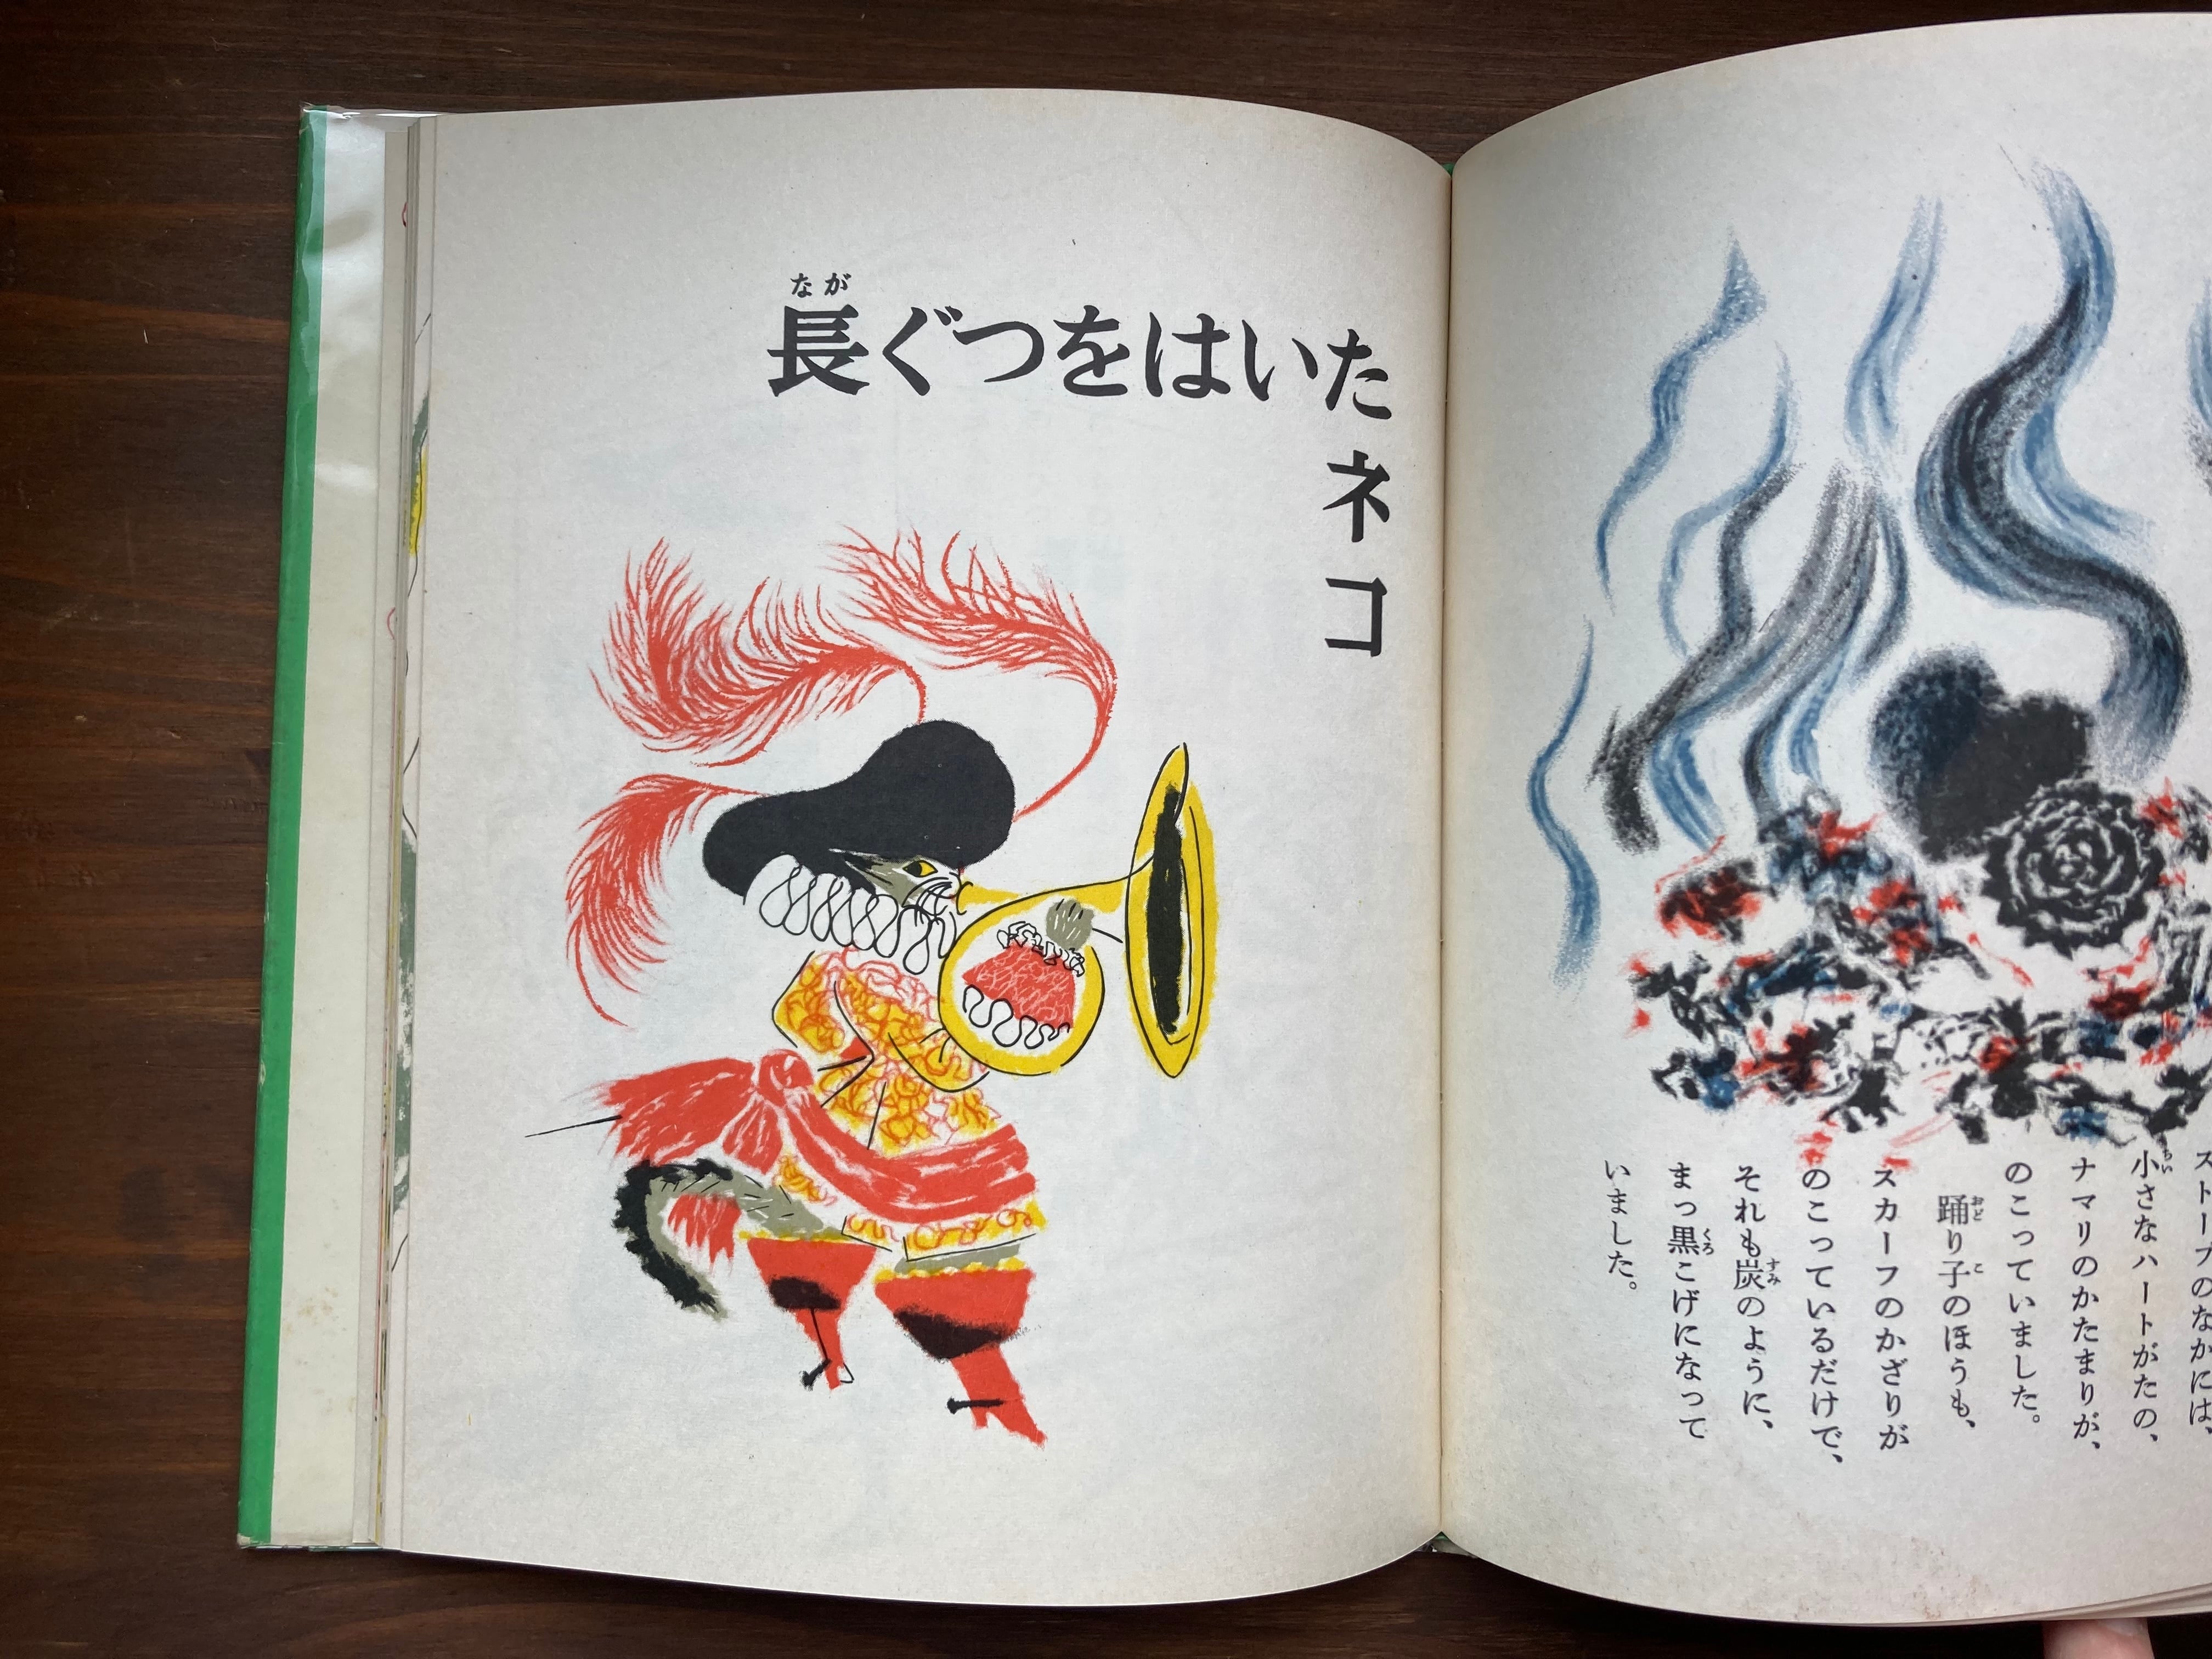 ストーブのなかには、
小さなハートがたの、
ナマリのかたまりが、
のこっていました。
踊り子のほうも、
スカーフのかざりが
のこっているだけで、
それも炭のように、
まっ黒こげになって
いました。
なが
長ぐつをはいた
ネコ